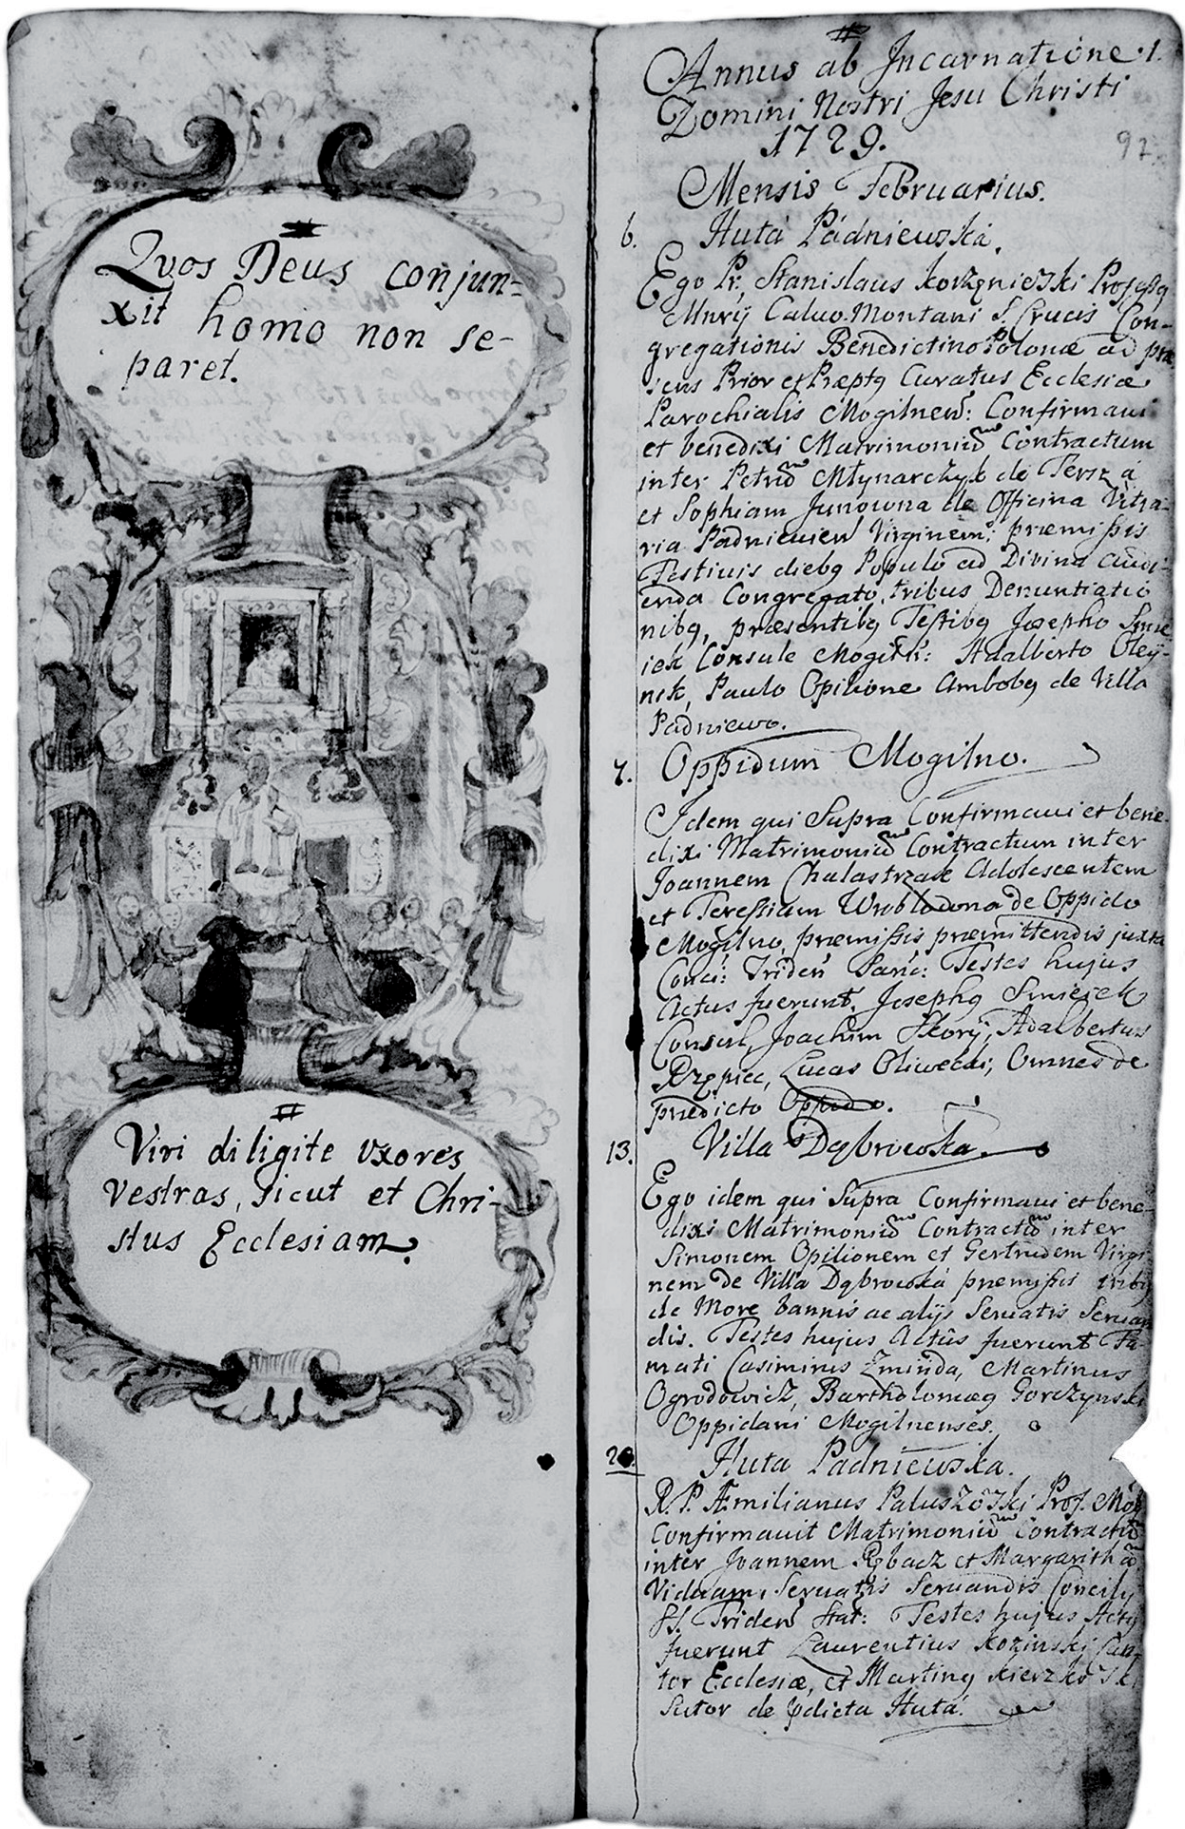 Quos Deus conjun=
xit homo non se-
paret.
Viri diligite uxores
vestras, sicut et Chri-
stus Ecclesiam.
Annus ab Incarnatione 1.
Domini Nostri Jesu Christi
1729.
97
Mensis Februarius.
6. Huta Padniewska.
Ego Pr. Stanislaus Korzęniewski Professq
Mnrij Calvo Montani S. Crucis Con-
gregationis Benedictino Polonæ ad præ
sens Prior et Præptq Curatus Ecclesiæ
Parochialis Mogilnen: Confirmavi
et benedixi Matrimoniũ Contractum
inter Petrũ Młynarczyk de
et Sophiam Junowna de Officina Vitra-
ria Padniewien Virginem; præmissis
Festivis diebq Populo ad Divina audi-
enda Congregato, tribus Denuntiatio
nibq, præsentibq Testibq Josepho Smie
iek Consule Mogiln: Adalberto Oley-
nik, Paulo Opilione Ambobq de Villa
Padniewo.
7. Oppidum Mogilno.
Idem qui Supra Confirmavi et bene-
dixi Matrimoniũ Contractum inter
Joannem Chalastrzak Adolescentem
et Teressiam de Oppido
Mogilno, præmissis præmittendis juxta
Conci: Triden Sanc: Testes hujus
Actus fuerunt. Josephq Smierek
Consul, Joachim Skory, Adalbertus
Rzępiec, Lucas Oliwecki; Omnes de
prædicto Oppido.
13. Villa Dąbrowska.
Ego idem qui Supra Confirmavi et bene-
dixi Matrimoniũ Contractũ inter
Simonem Opilionem et Gertrudem Virgi
nem de Villa Dąbrowska præmissis tribq
de More bannis ac alijs Servatis Servan
dis. Testes hujus Actûs fuerunt Fa-
mati Casimirus Zminda, Martinus
Ogrodowicz, Bartholomæq Gorczynski
Oppidani Mogilnenses.
20. Huta Padniewska.
R. P. Æmilianus Paluszowski Prof. Mog
Confirmavit Matrimoniũ Contractũ
inter Joannem Rybacz et Margarithã
Viduam, Servatis Servandis Concilij
SS. Triden Stat: Testes hujus Actq
fuerunt Laurentius Kozinski Can-
tor Ecclesiæ, et Martinq Kierzkowski
Sutor de pdicta Huta.